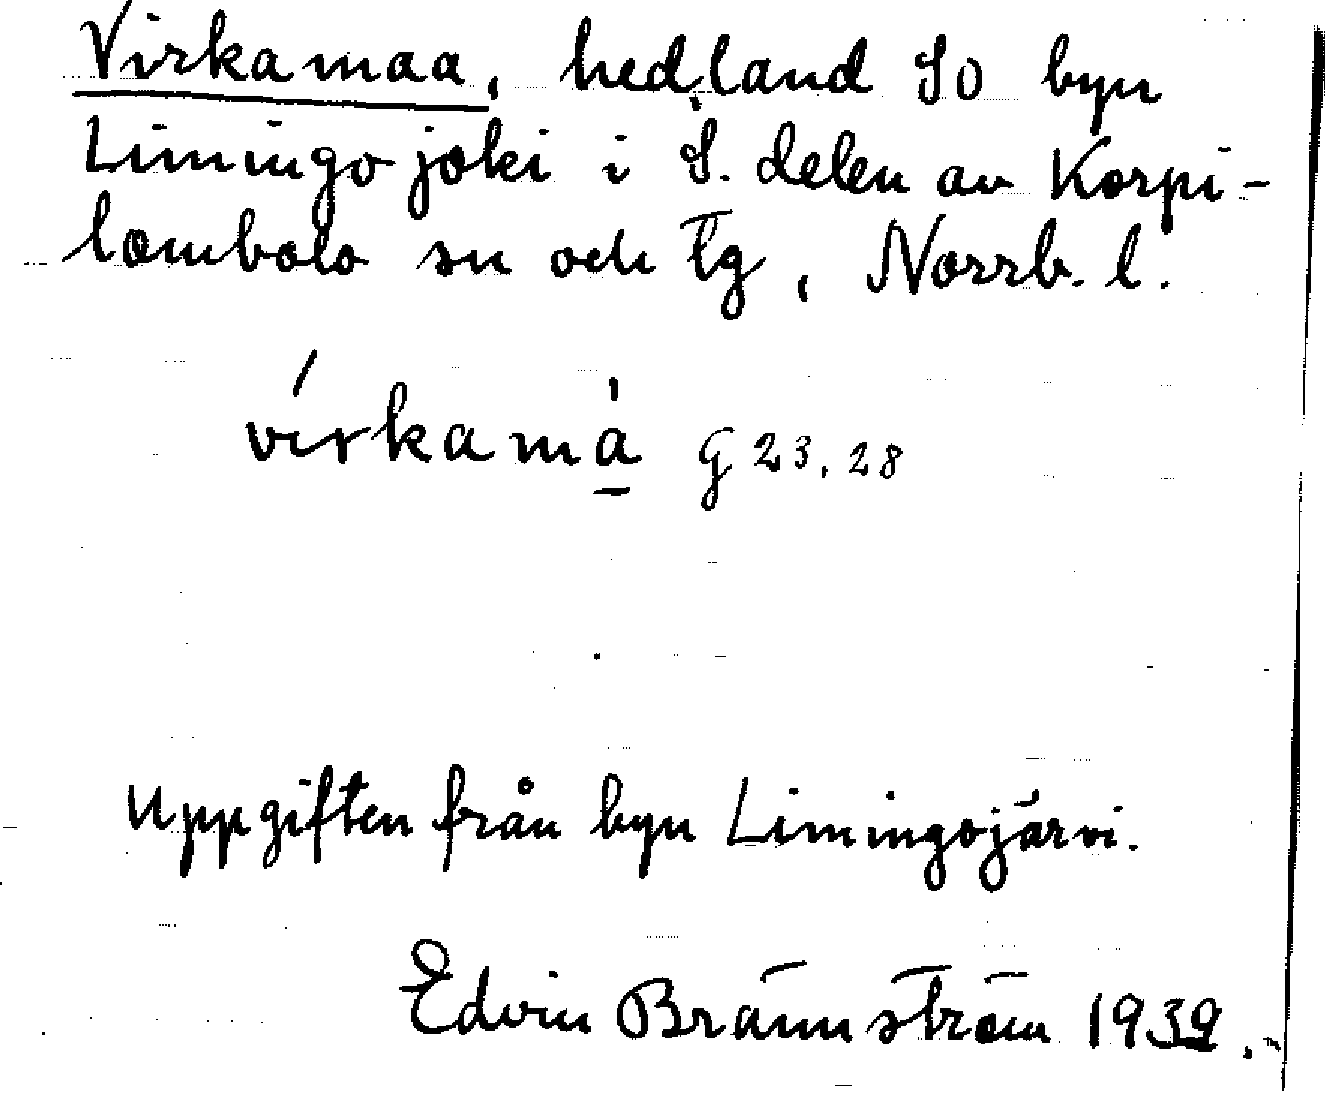 Virkamaa, hedland SO byn
Limingojoki i S. delen av Korpi-
lombolo sn och tg, Norrb. l.
vírkamà̱ G 23, 28
Uppgiften från byn Limingojärvi.
Edvin Brännström 1939.